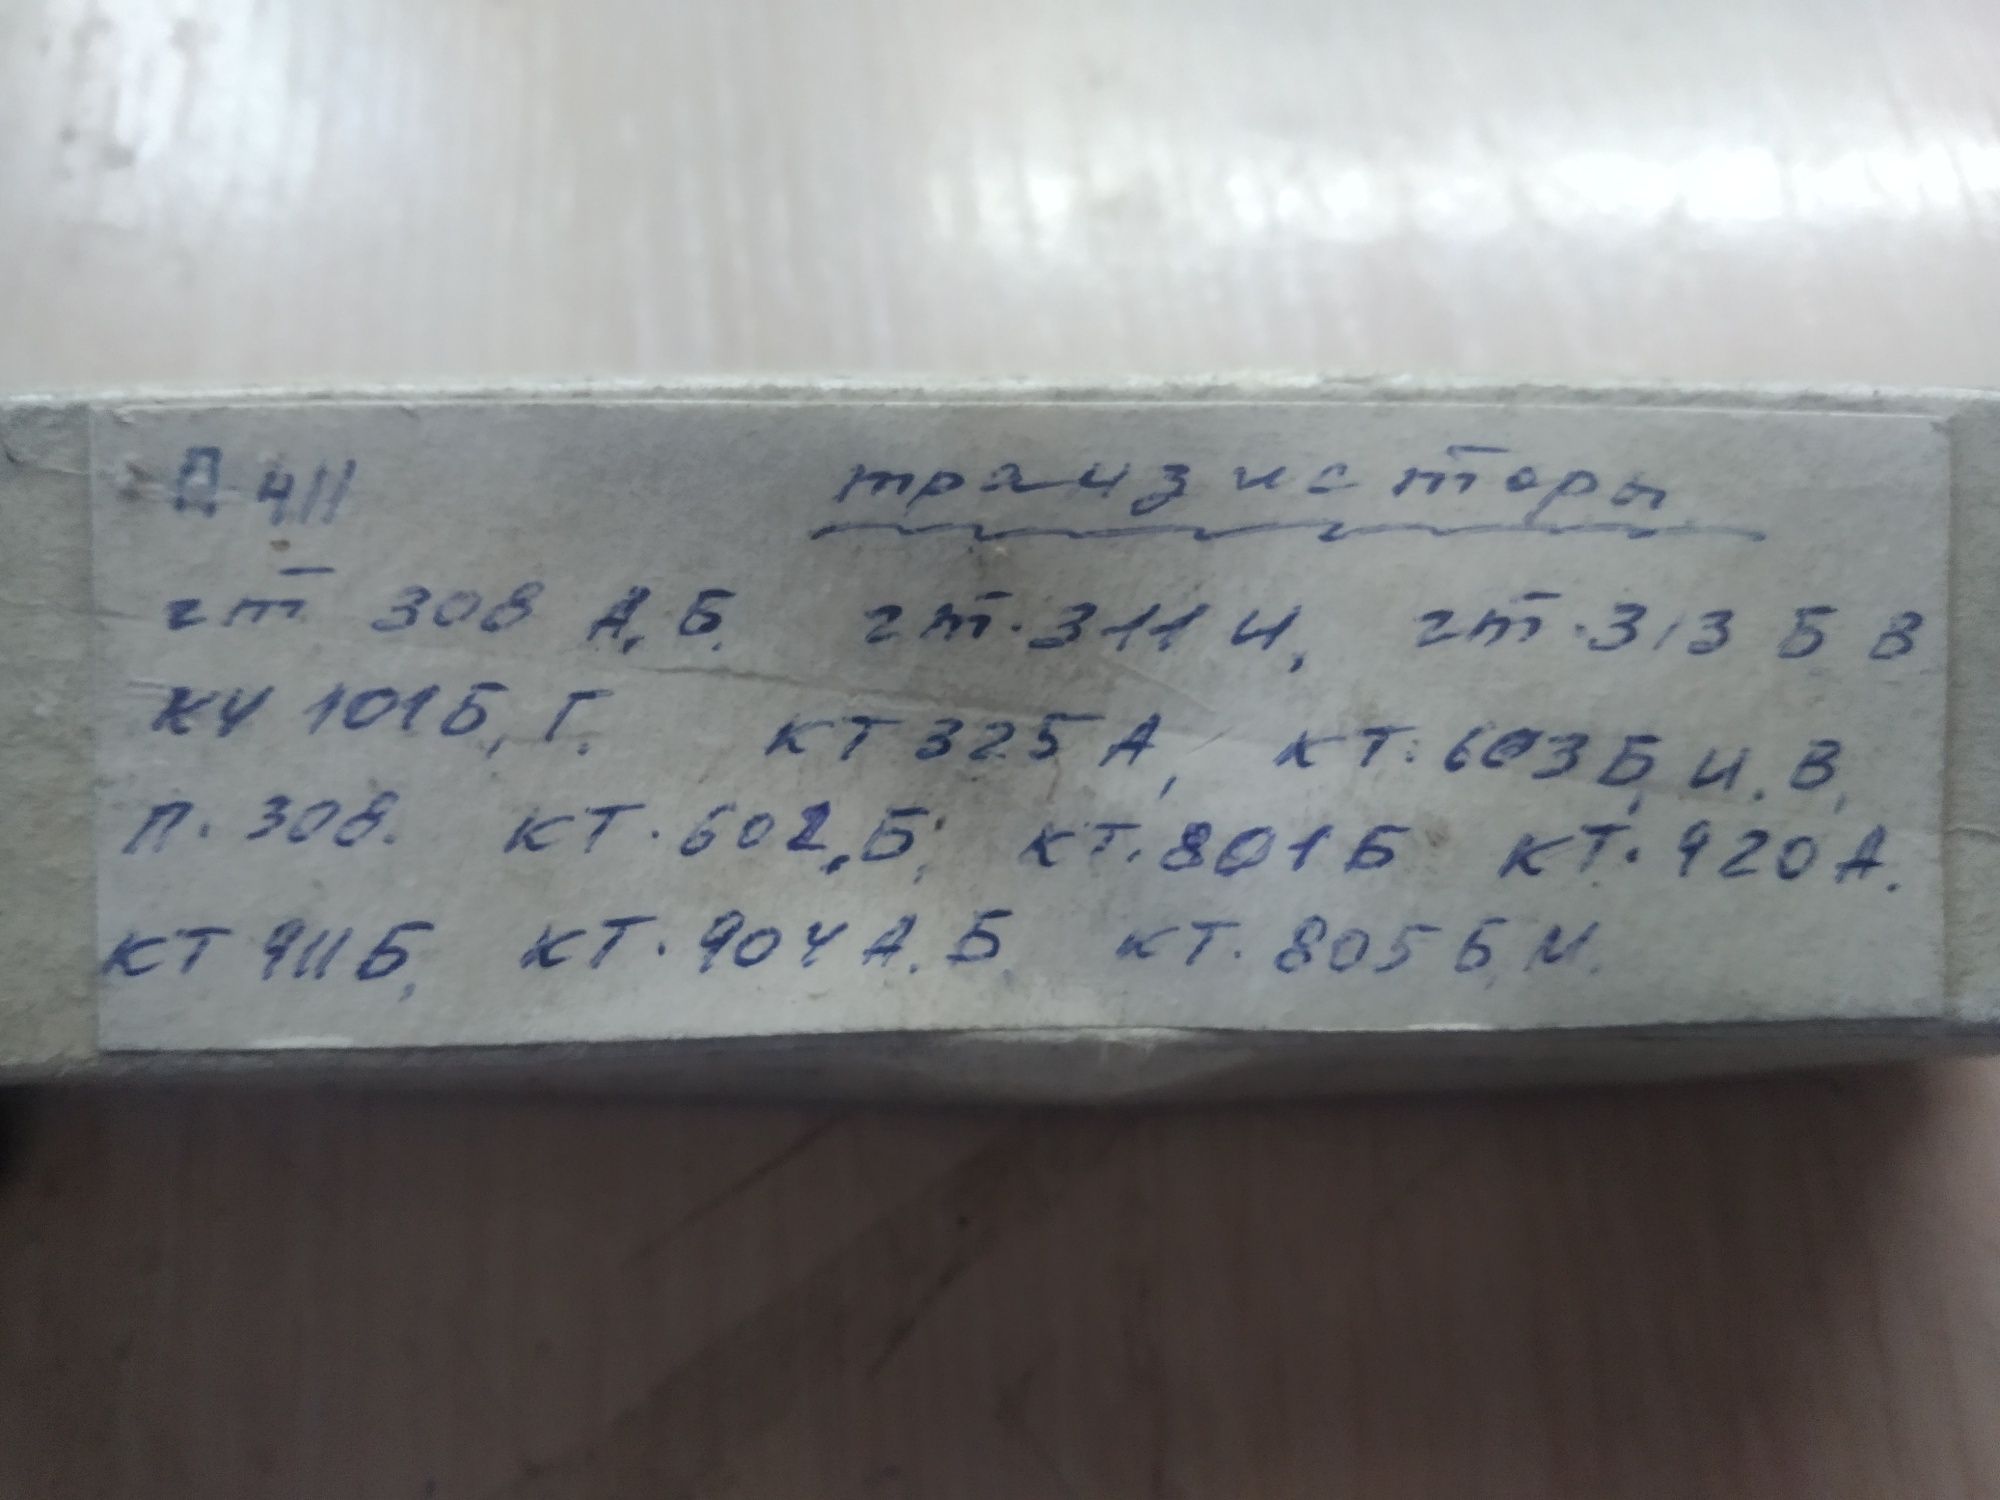 Д 411 транзисторы
гт 308 А, Б. гт. 311 И, гт. 313 Б В
КУ 101Б, Г. КТ 325 А, КТ. 603 Б, И. В,
П. 308. КТ. 602, Б, КТ. 801 Б КТ. 920 А.
КТ 911Б, КТ. 904 А. Б, КТ. 805 Б М.